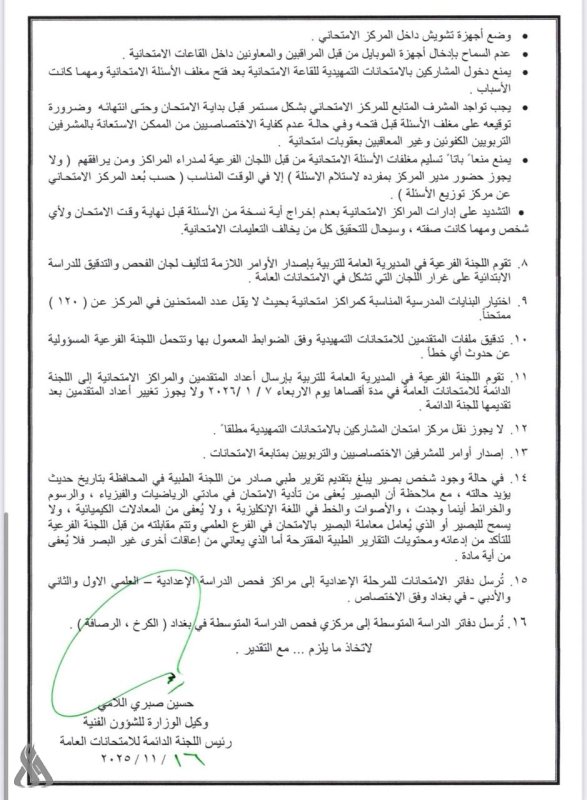 • وضع أجهزة تشويش داخل المركز الامتحاني .
• عدم السماح بإدخال أجهزة الموبايل من قبل المراقبين والمعاونين داخل القاعات الامتحانية .
• يمنع دخول المشاركين بالامتحانات التمهيدية للقاعة الامتحانية بعد فتح مغلف الأسئلة الامتحانية ومهما كانت
الأسباب .
• يجب تواجد المشرف المتابع للمركز الامتحاني بشكل مستمر قبل بداية الامتحان وحتى انتهائه وضرورة
توقيعه على مغلف الأسئلة قبل فتحه وفي حالة عدم كفاية الاختصاصيين من الممكن الاستعانة بالمشرفين
التربويين الكفوئين وغير المعاقبين بعقوبات امتحانية .
• يمنع منعاً باتاً تسليم مغلفات الأسئلة الامتحانية من قبل اللجان الفرعية لمدراء المراكز ومن يرافقهم ( ولا
يجوز حضور مدير المركز بمفرده لاستلام الاسئلة ) إلا في الوقت المناسب ( حسب بُعد المركز الامتحاني
عن مركز توزيع الأسئلة ) .
• التشديد على إدارات المراكز الامتحانية بعدم إخراج أية نسخة من الأسئلة قبل نهاية وقت الامتحان ولأي
شخص ومهما كانت صفته ، وسيحال للتحقيق كل من يخالف التعليمات الامتحانية.
٨. تقوم اللجنة الفرعية في المديرية العامة للتربية بإصدار الأوامر اللازمة لتأليف لجان الفحص والتدقيق للدراسة
الابتدائية على غرار اللجان التي تشكل في الامتحانات العامة .
٩. اختيار البنايات المدرسية المناسبة كمراكز امتحانية بحيث لا يقل عدد الممتحنين في المركز عن ( ١٢٠ )
ممتحناً.
١٠. تدقيق ملفات المتقدمين للامتحانات التمهيدية وفق الضوابط المعمول بها وتتحمل اللجنة الفرعية المسؤولية
عن حدوث أي خطأ .
١١. تقوم اللجنة الفرعية في المديرية العامة للتربية بإرسال أعداد المتقدمين والمراكز الامتحانية إلى اللجنة
الدائمة للامتحانات العامة في مدة أقصاها يوم الاربعاء ٧ / ١ /٢٠٢٦ ولا يجوز تغيير أعداد المتقدمين بعد
تقديمها للجنة الدائمة .
١٢. لا يجوز نقل مركز امتحان المشاركين بالامتحانات التمهيدية مطلقاً .
١٣. إصدار أوامر للمشرفين الاختصاصيين والتربويين بمتابعة الامتحانات .
١٤. في حالة وجود شخص بصير يبلغ بتقديم تقرير طبي صادر من اللجنة الطبية في المحافظة بتاريخ حديث
يؤيد حالته ، مع ملاحظة أن البصير يُعفى من تأدية الامتحان في مادتي الرياضيات والفيزياء ، والرسوم
والخرائط أينما وجدت ، والأصوات والخط في اللغة الإنكليزية ، ولا يُعفى من المعادلات الكيميائية ، ولا
يسمح للبصير أو الذي يُعامل معاملة البصير بالامتحان في الفرع العلمي وتتم مقابلته من قبل اللجنة الفرعية
للتأكد من إدعائه ومحتويات التقارير الطبية المقترحة أما الذي يعاني من إعاقات أخرى غير البصر فلا يُعفى
من أية مادة .
١٥. تُرسل دفاتر الامتحانات للمرحلة الإعدادية إلى مراكز فحص الدراسة الإعدادية – العلمي الاول والثاني
والأدبي - في بغداد وفق الاختصاص .
١٦. تُرسل دفاتر الدراسة المتوسطة إلى مركزي فحص الدراسة المتوسطة في بغداد ( الكرخ ، الرصافة ) .
لاتخاذ ما يلزم ... مع التقدير .
حسين صبري اللامي
وكيل الوزارة للشؤون الفنية
رئيس اللجنة الدائمة للامتحانات العامة
١٦ / ١١ / ٢٠٢٥